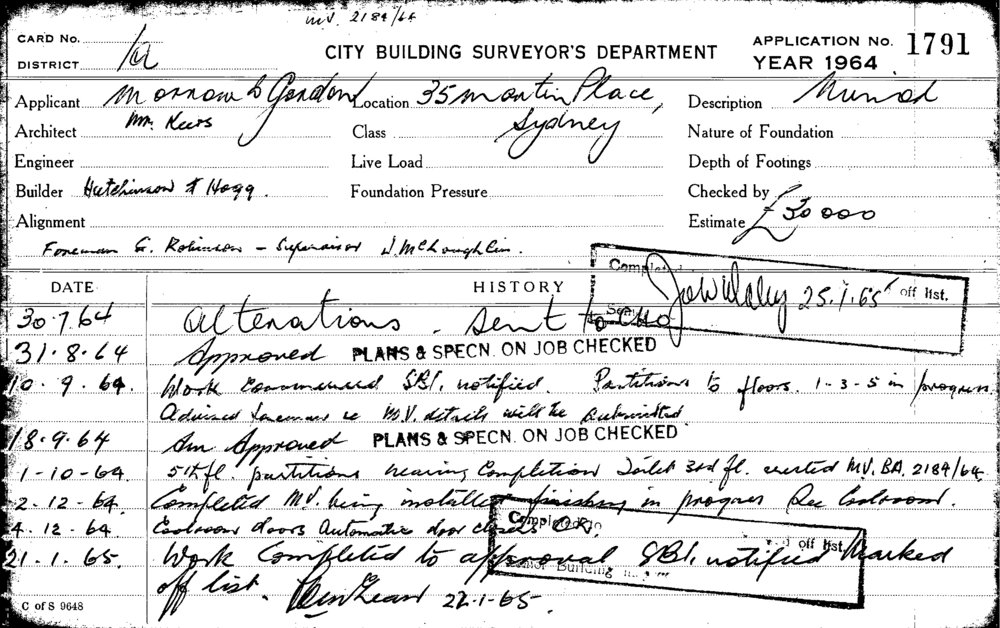 M.V. 2184/64
CARD No.
DISTRICT
CITY BUILDING SURVEYOR'S DEPARTMENT
APPLICATION No. 1791
YEAR 1964
Applicant Morrow & Gordon Location 35 Martin Place, Description
Architect Mr. Class Sydney Nature of Foundation
Engineer Live Load Depth of Footings
Builder Hutchinson & Hogg. Foundation Pressure Checked by
Alignment Estimate £30000
Foreman G. Robinson – Supervisor J. McLoughlin.
DATE HISTORY
Completed 25.1.65 off list.
30.7.64 Alterations. Sent to CHO
31.8.64 Approved PLANS & SPECN. ON JOB CHECKED
10.9.64. Work commenced SBI. notified. Partitions to floors. 1-3-5 in progress
Advised foreman re M.V. details will be submitted
18.9.64 Am Approved PLANS & SPECN. ON JOB CHECKED
1-10-64. 5th fl. partitions nearing completion Toilet 3rd fl. erected MV. BA. 2184/64.
2.12-64. Completed M.V. being installed finishing in progress
4.12.64 doors Automatic door closers O.K.
Completed
off list
Senior Building
21.1.65. Work Completed to approval SBI. notified Marked
off list. 22-1-65.
C of S 9648